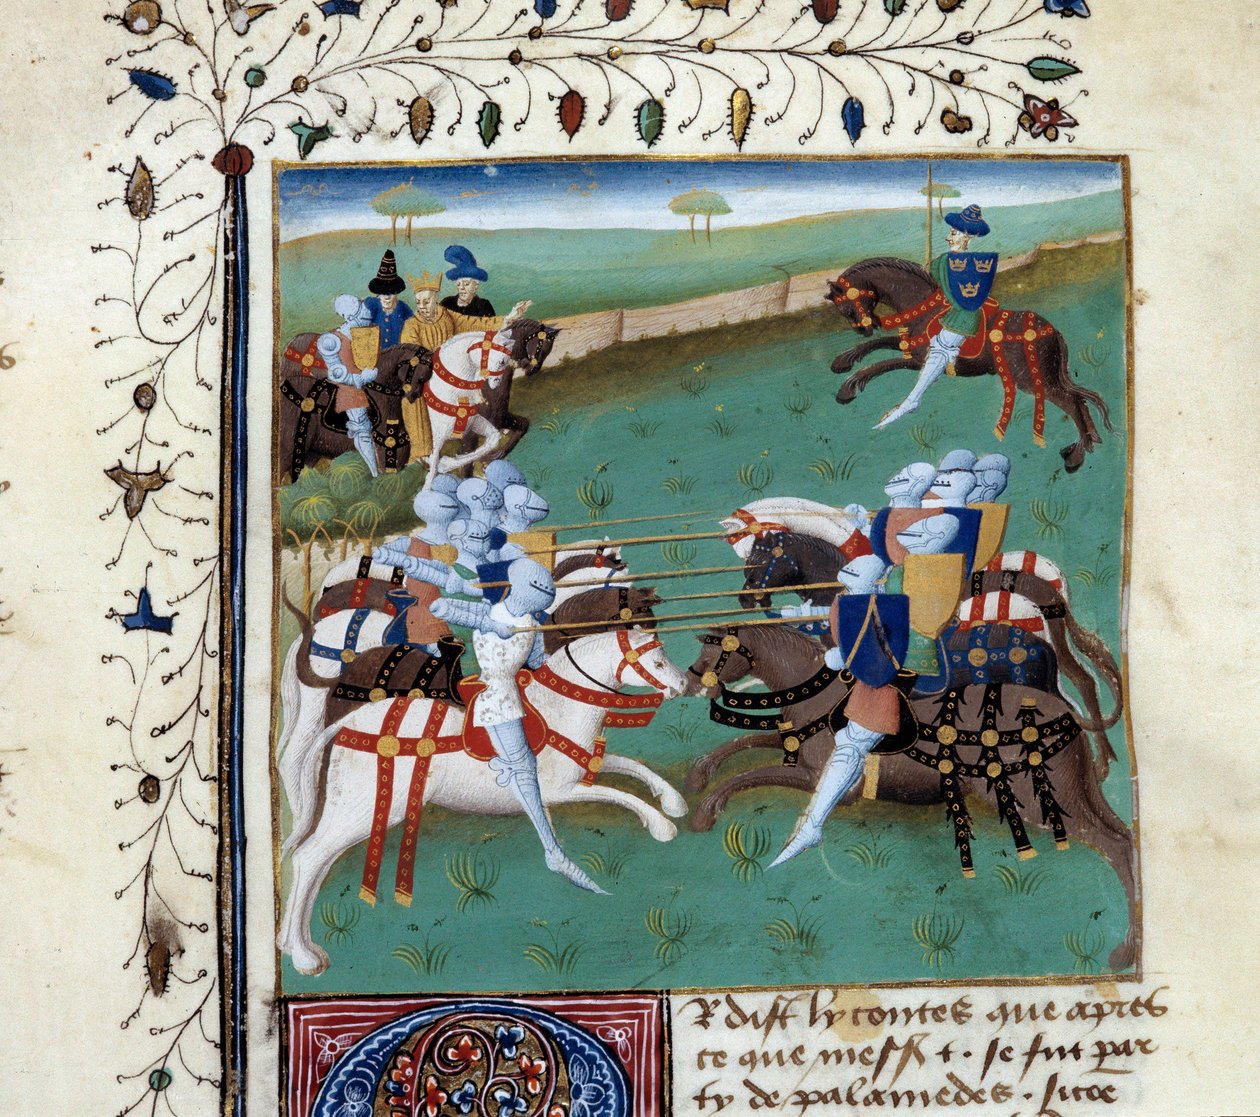 R dist ly contes que apres
ce que mess t. se fut par
ty de palamedes. sicõe